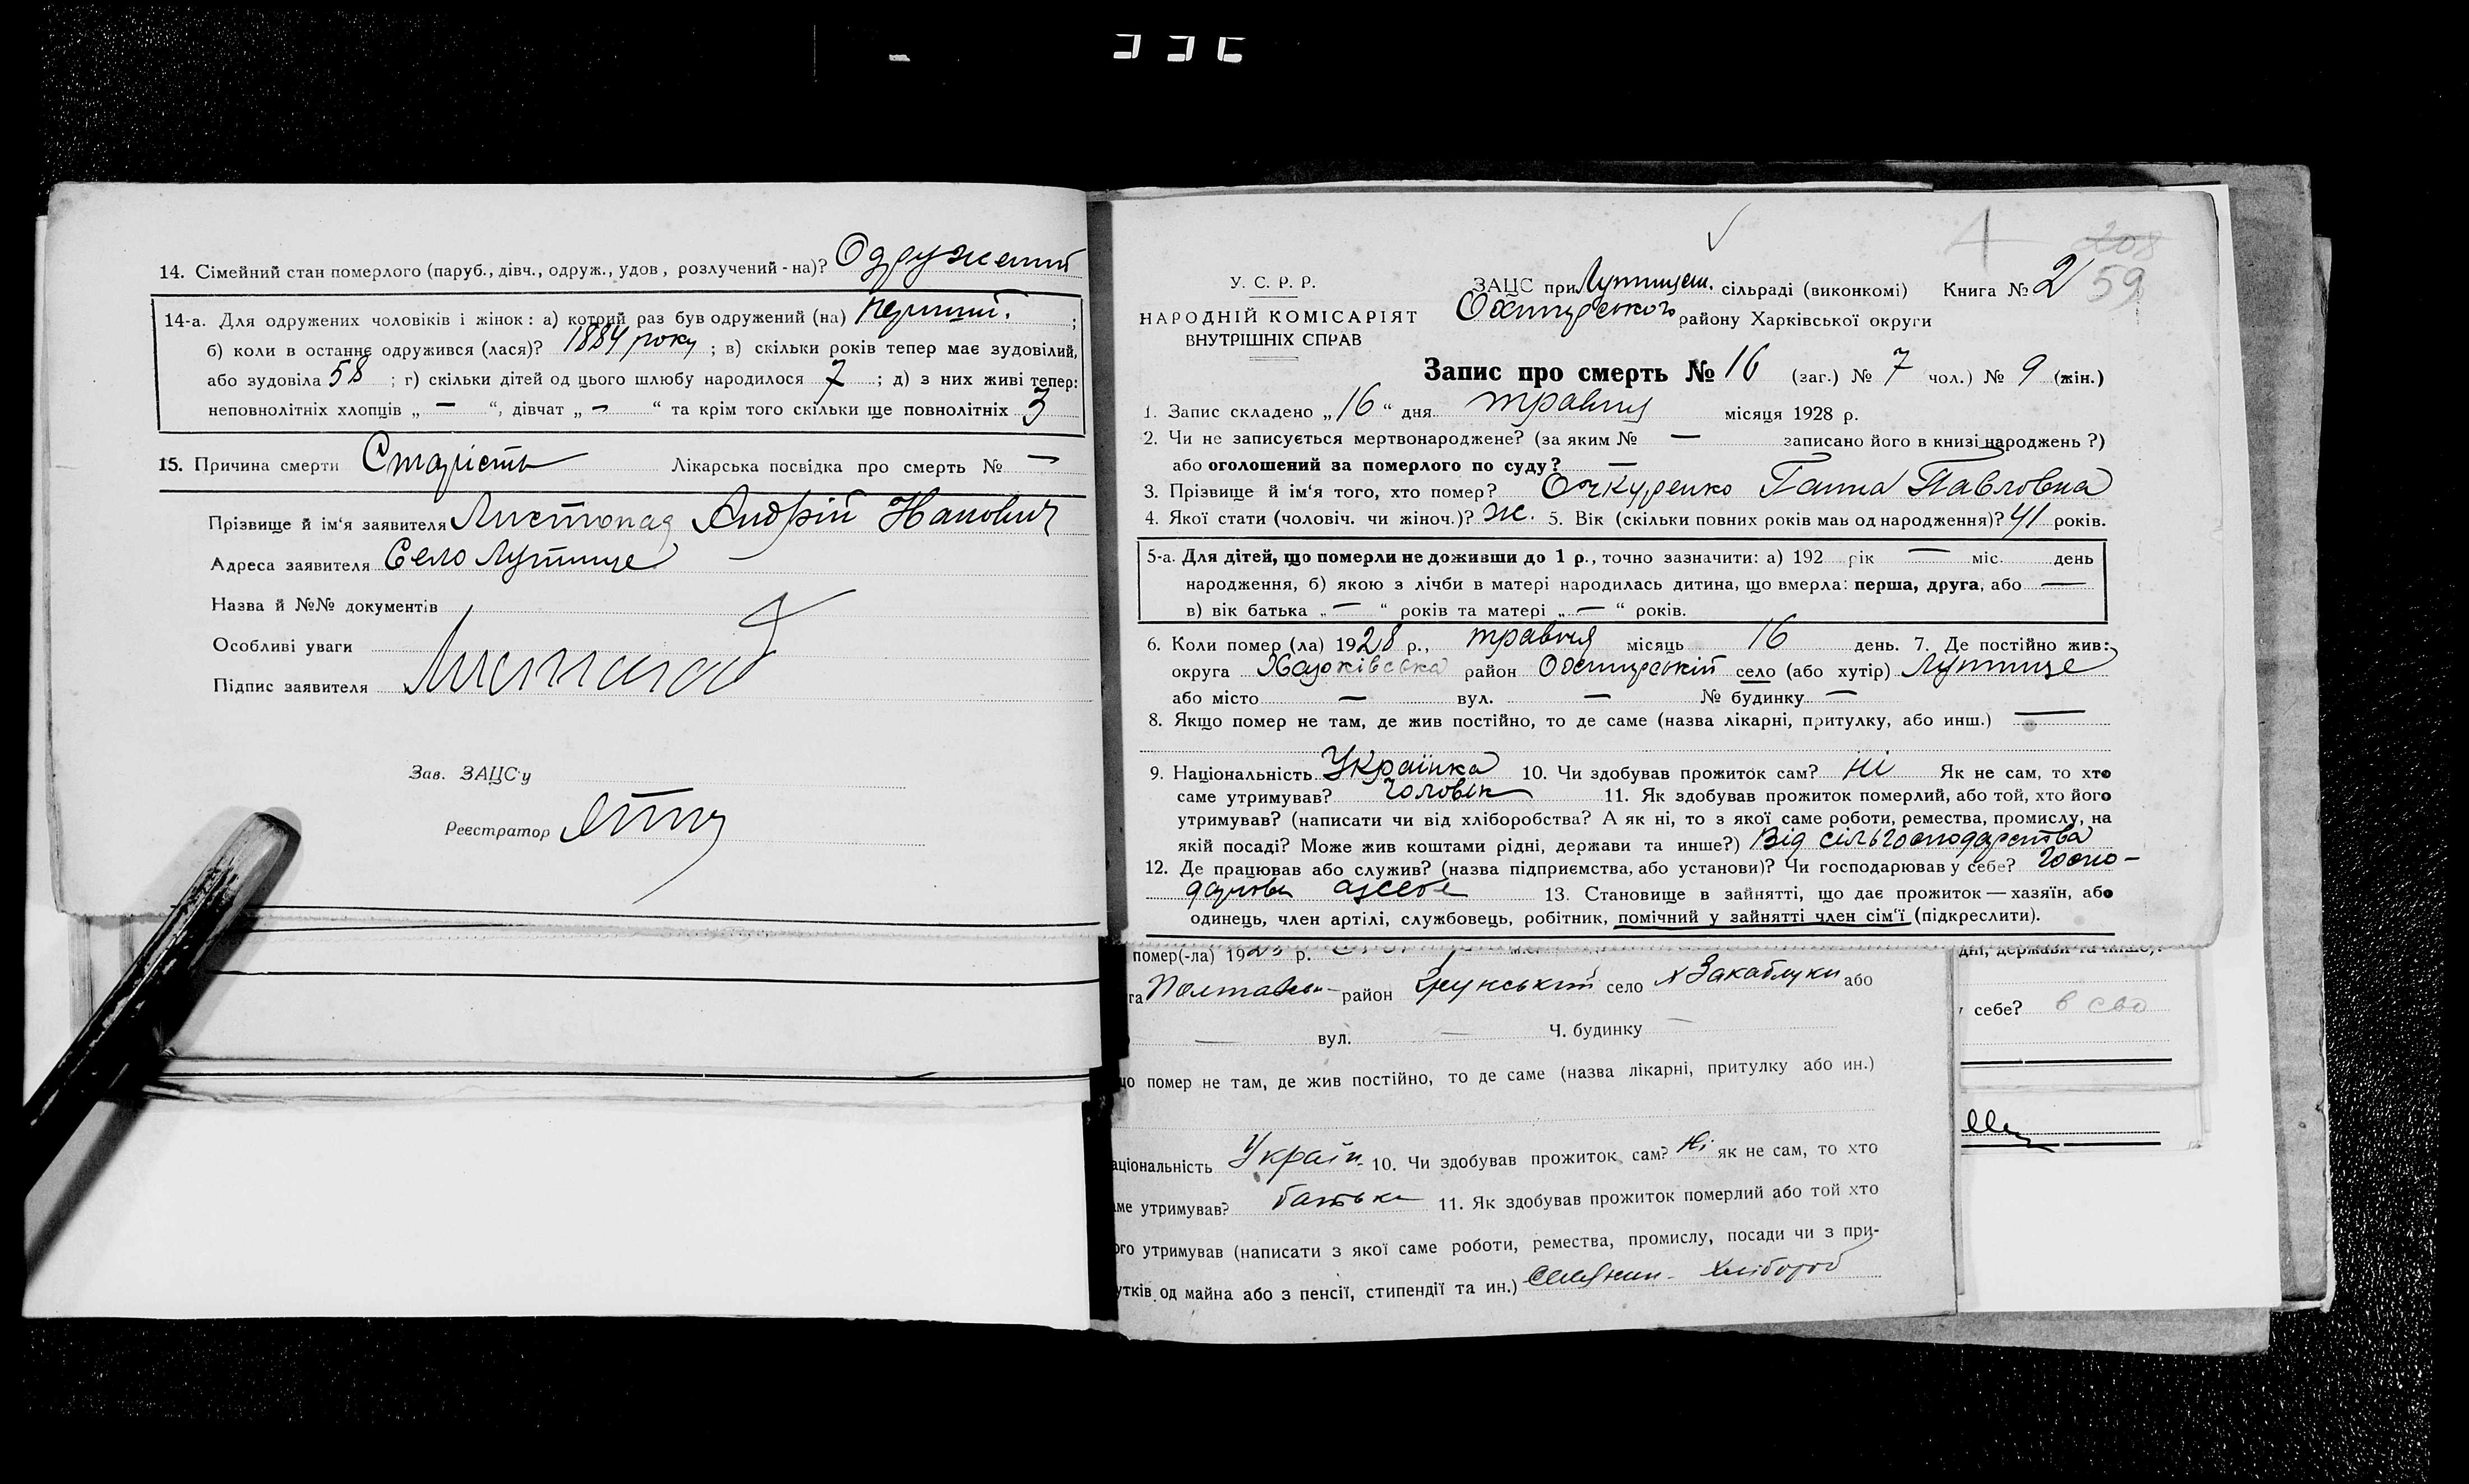 14. Сімейний стан померлого (паруб., дівч., одруж., удов, розлучений-на)? Одружений
14-а. Для одружених чоловіків і жінок: а) котрий раз був одружений (на) перший. ;
б) коли в останнє одружився (лася)? 1884 року ; в) скільки років тепер має зудовілий,
або зудовіла 58 ; г) скільки дітей од цього шлюбу народилося 7 ; д) з них живі тепер:
неповнолітніх хлопців „ — “, дівчат „ — “ та крім того скільки ще повнолітніх 3
15. Причина смерти Старість Лікарська посвідка про смерть № —
Прізвище й ім'я заявителя Листопад Андрій
Адреса заявителя Село Лутище
Назва й №№ документів
Особливі уваги
Підпис заявителя Листопад
Зав. ЗАЦС'у
Реєстратор
208
59
У. С. Р. Р.
НАРОДНІЙ КОМІСАРІЯТ
ВНУТРІШНІХ СПРАВ
ЗАЦС при Лутищан. сільраді (виконкомі) Книга № 2
Охтирського району Харківської округи
Запис про смерть № 16 (заг.) № 7 чол.) № 9 (жін.)
1. Запис складено „16“ дня травня місяця 1928 р.
2. Чи не записується мертвонароджене? (за яким № — записано його в книзі народжень ?)
або оголошений за померлого по суду? —
3. Прізвище й ім'я того, хто помер? Очкуренко Ганна Павловна
4. Якої стати (чоловіч. чи жіноч.)? Ж. 5. Вік (скільки повних років мав од народження)? 41 років.
5-а. Для дітей, що померли не доживши до 1 р., точно зазначити: а) 192 рік — міс. день
народження, б) якою з лічби в матері народилась дитина, що вмерла: перша, друга, або —
в) вік батька „ — “ років та матері „ — “ років.
6. Коли помер (ла) 1928 р., травня місяць 16 день. 7. Де постійно жив:
округа Харківська район Охтирський село (або хутір) Лутище
або місто — вул. — № будинку —
8. Якщо помер не там, де жив постійно, то де саме (назва лікарні, притулку, або инш.) —
9. Національність Українка 10. Чи здобував прожиток сам? ні Як не сам, то хто
саме утримував? Чоловік 11. Як здобував прожиток померлий, або той, хто його
утримував? (написати чи від хліборобства? А як ні, то з якої саме роботи, ремества, промислу, на
якій посаді? Може жив коштами рідні, держави та инше?) Від сільгосподарства
12. Де працював або служив? (назва підприємства, або установи)? Чи господарював у себе? Госпо-
13. Становище в зайнятті, що дає прожиток — хазяїн, або
одинець, член артілі, службовець, робітник, помічний у зайнятті член сім'ї (підкреслити).
помер(-ла) 192 р.
га район Грунський село х Закаблуки або
— вул. — Ч. будинку —
що помер не там, де жив постійно, то де саме (назва лікарні, притулку або ин.)
аціональність Україн. 10. Чи здобував прожиток сам? Ні як не сам, то хто
аме утримував? батько 11. Як здобував прожиток померлий або той хто
ого утримував (написати з якої саме роботи, ремества, промислу, посади чи з при-
утків од майна або з пенсії, стипендії та ин.) Хлібороб
дні, держави та инше,?
у себе? в сво